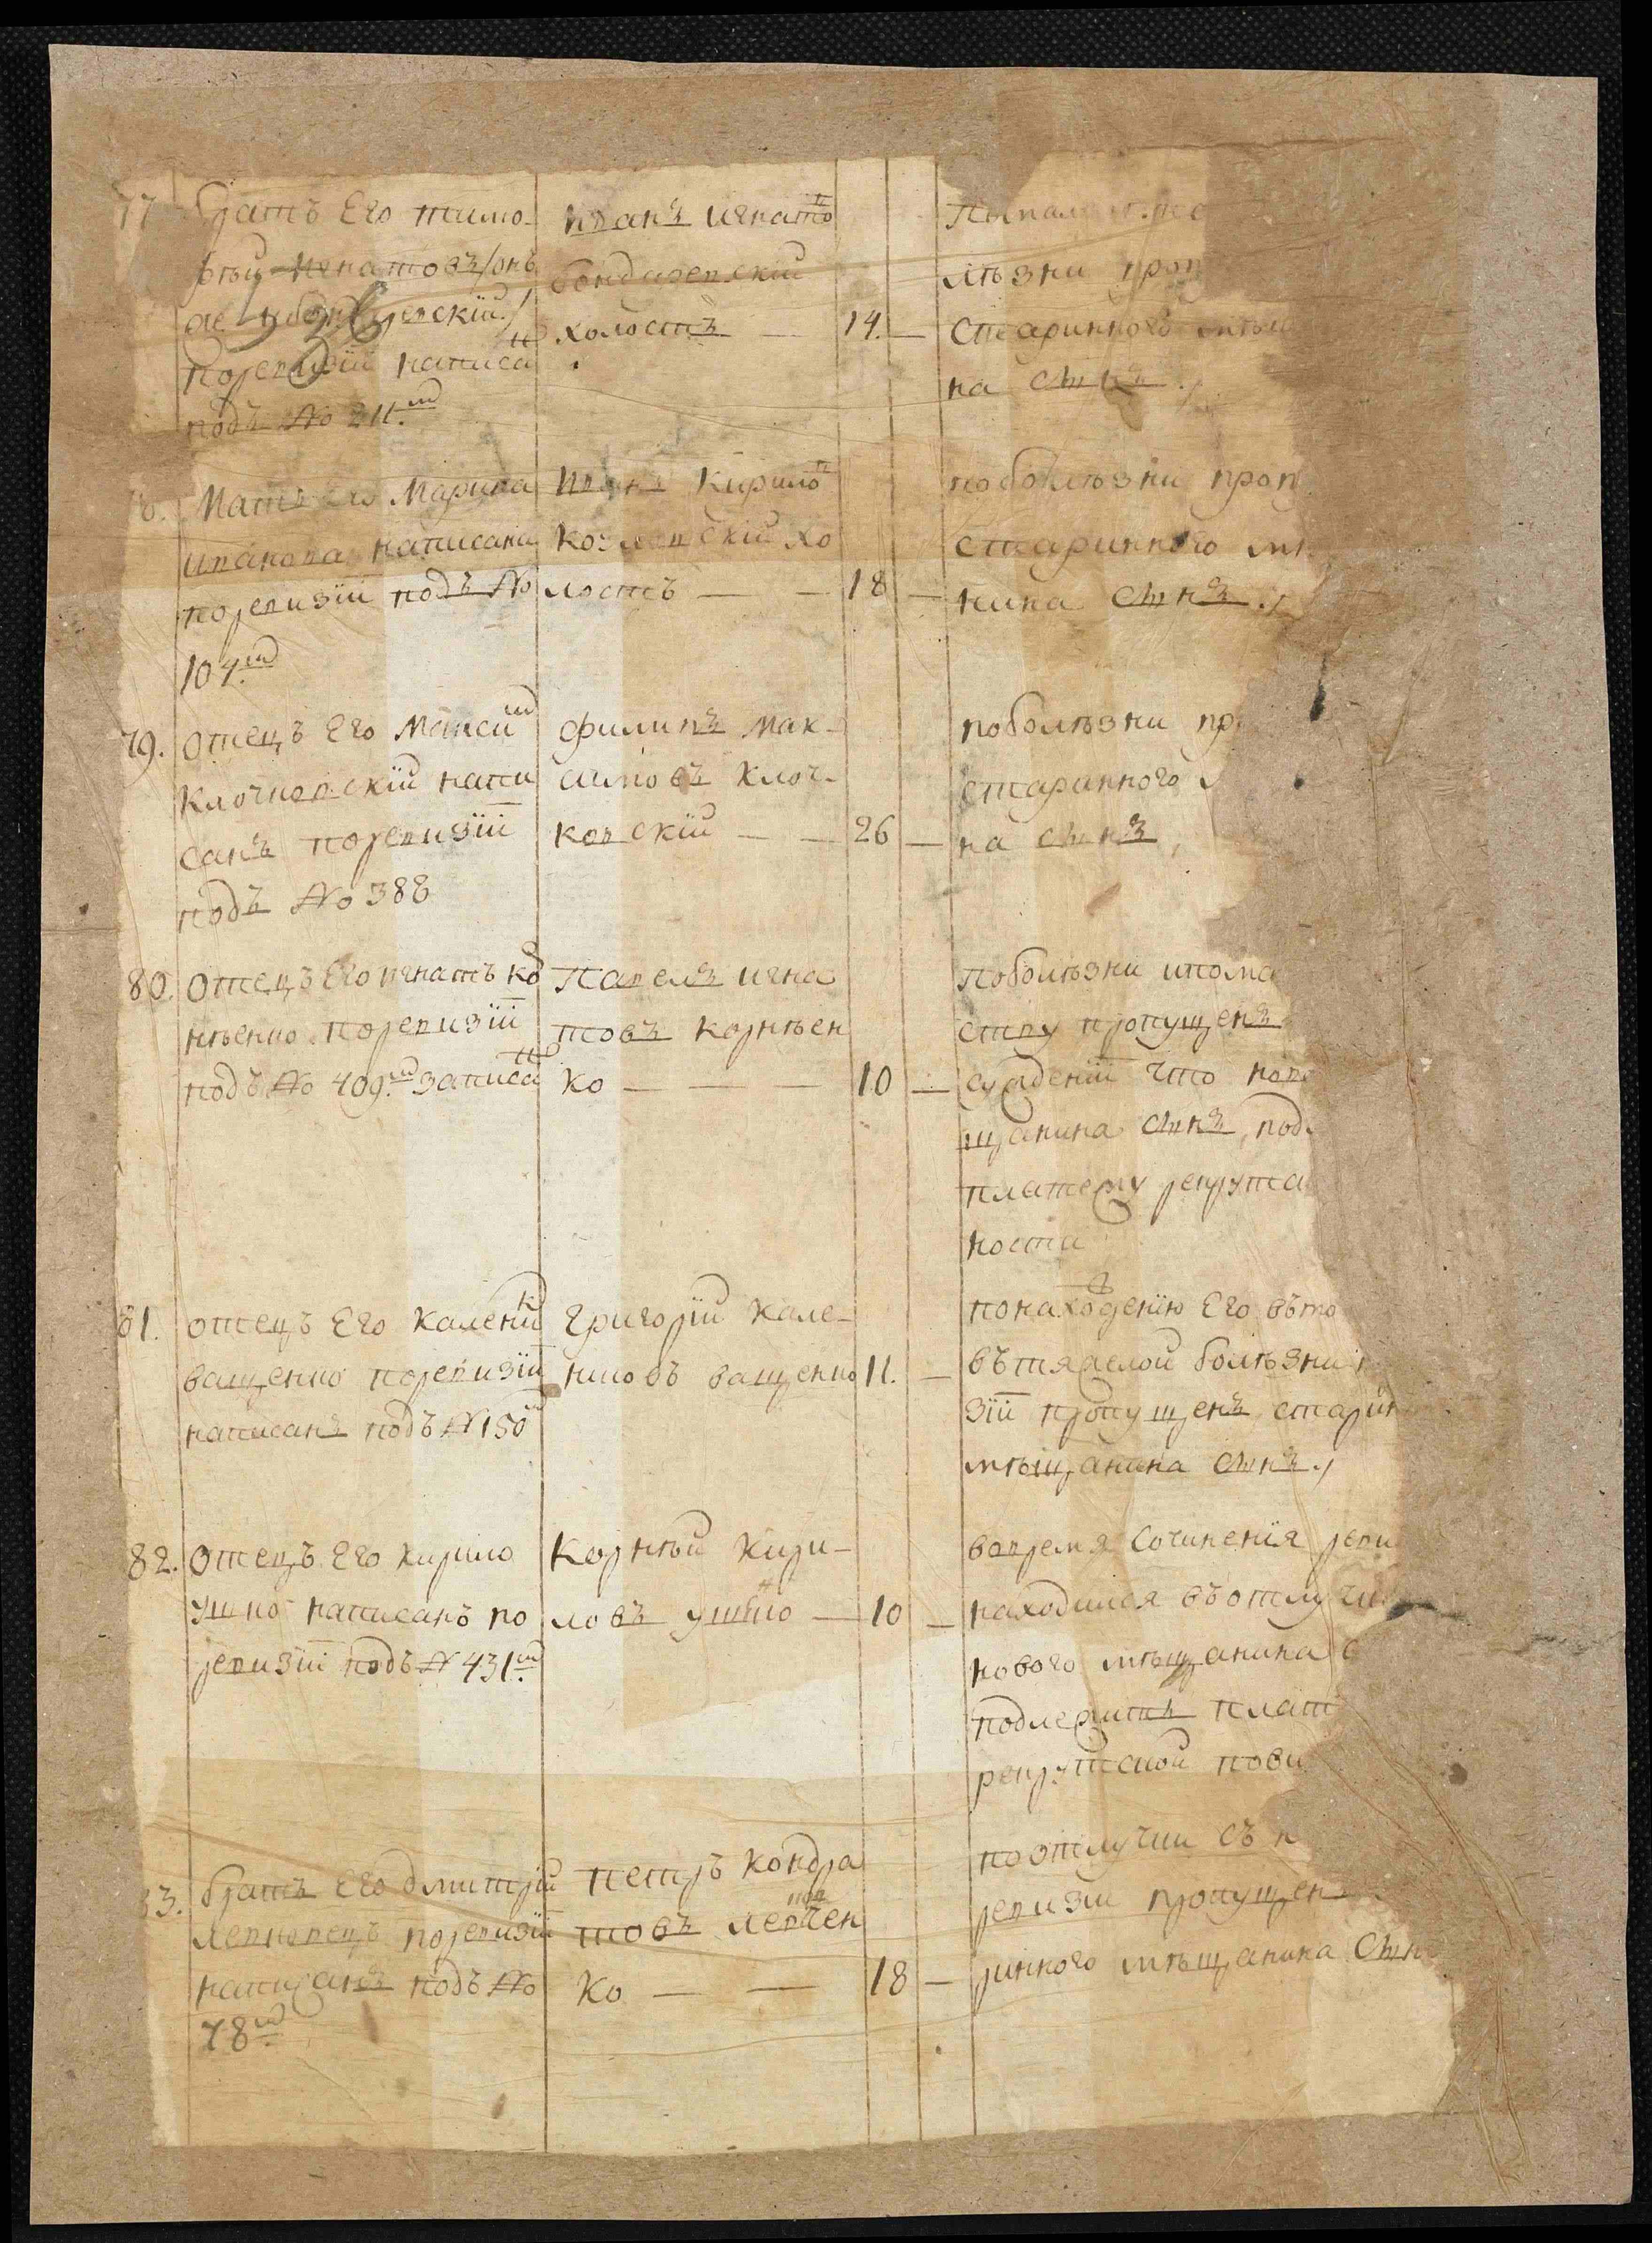 77 братъ Его тимо-
фѣй игнатовъ/онъ
же и бондаревскій/
поревизіи написа н
подъ № 211.м
иванъ игнато в
бондаревскій
холостъ — 14. —
мѣзни проп
стариннаго мѣщ
на сынъ./
Мать его Марина
иванова написана
поревизіи подъ №
104.м
иванъ Кирило в
Козловскій хо
лостъ — — 18 —
поболѣзни проп
стариннаго мѣ
нина сынъ./
79. отецъ Его Макси м
Клочковскій напи
санъ поревизіи
подъ № 388
филипъ Мак-
симовъ Клоч-
ковскій — — 26 —
поболѣзни пр
стариннаго
на сынъ,
80. отецъ Его игнатъ ко
нѣенко поревизіи
подъ № 409.м записа н
Павелъ игна
товъ корнѣен
ко — — — 10 —
поболѣзни ипома
ству пропущенъ
суждении что ново
щанина сынъ, под
платежу рекрутс
ности
81. отецъ Его Калени к
ващенко поревизіи
написанъ подъ № 150
григорій Кале-
никовъ ващенко 11. —
понахо в денію Его въто
въ тяжелой болѣзни
зіи пропущенъ старин
мѣщанина сынъ./
82. отецъ Его Кирило
ушко написанъ по
ревизіи подъ № 431.м
Корнѣй Кири-
ловъ ушко — 10 —
вовремя сочиненія реви
находился въ отлучк
новаго мѣщанина с
подлежитъ плат
рекрутской пови
83. братъ Его дмитрій
левковецъ поревизіи
написанъ подъ №
78.м
петръ кондра
товъ левчен
ко — — 18 —
поотлучки съ
ревизіи пропущен
риннаго мѣщанина сынъ